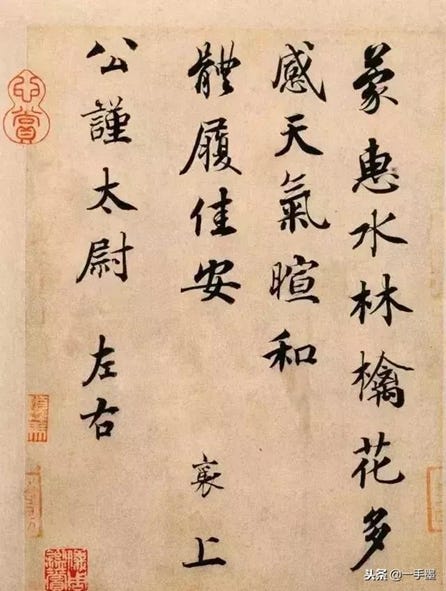 蒙惠水林檎花多
感天氣暄和
體履佳安
襄上
公謹太尉
左右
頭条@一手墨